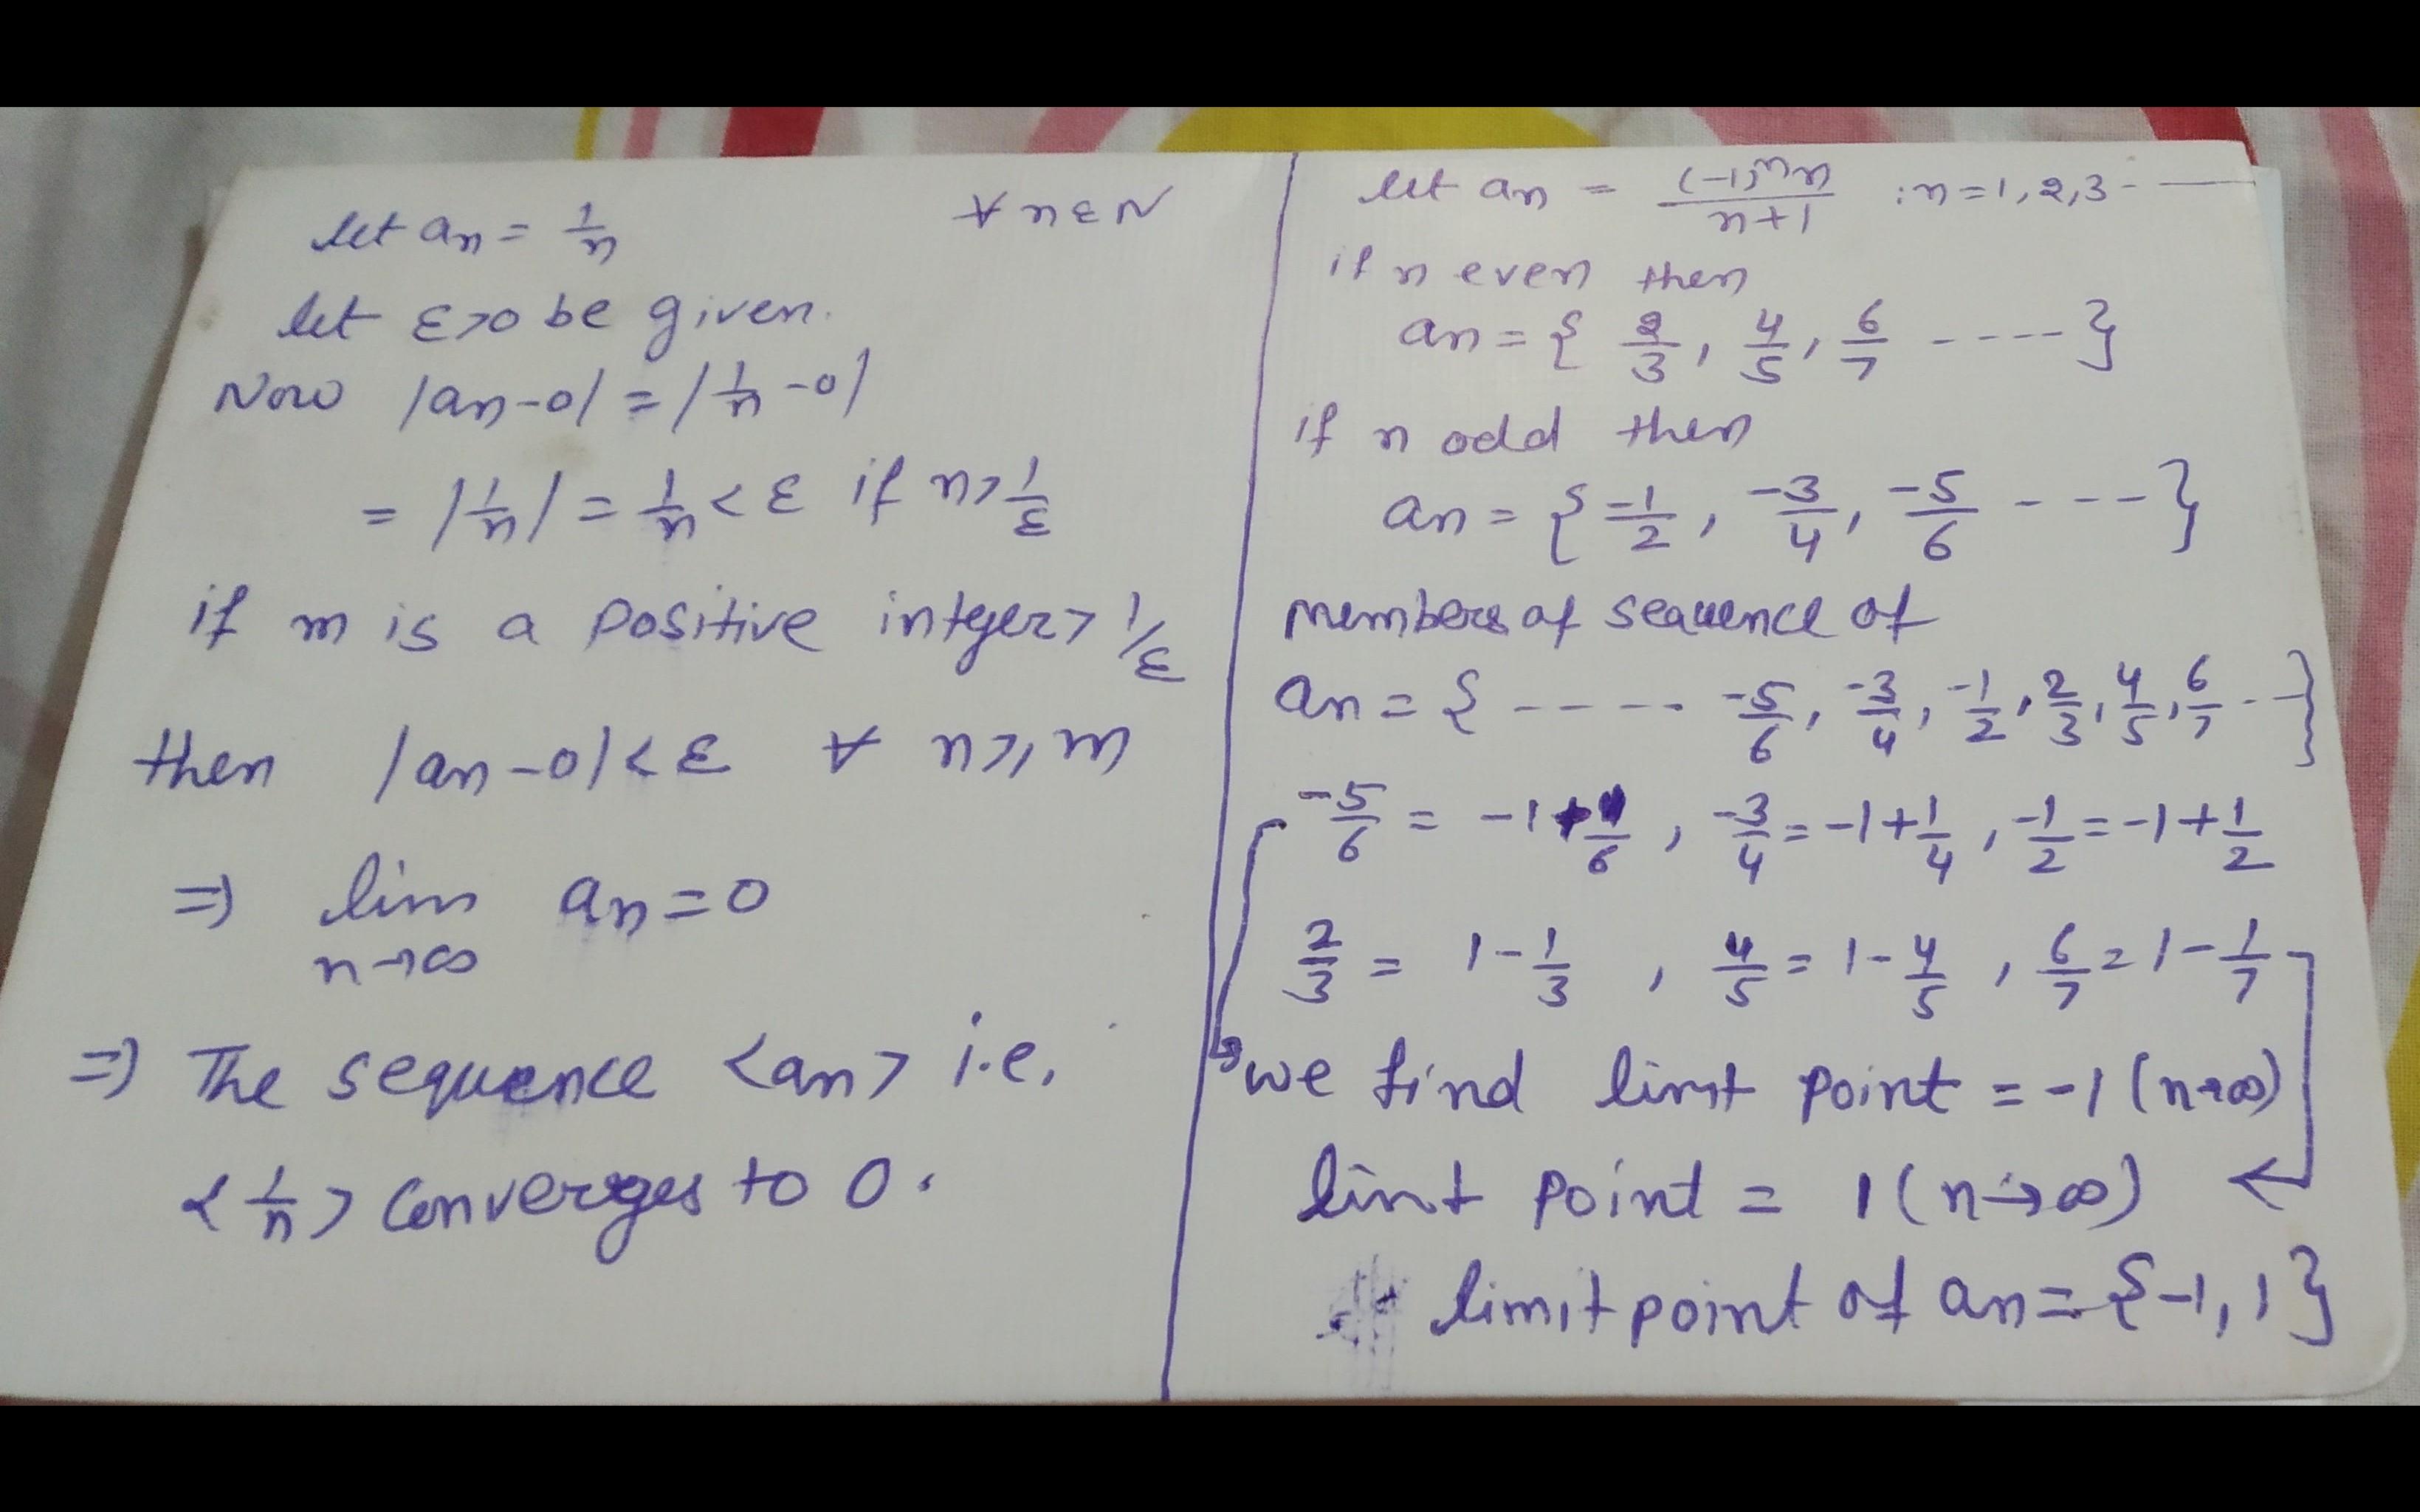 let an = 1/n ∀ n ε N
let ε>0 be given.
Now |an-0| = |1/n -0|
= |1/n| = 1/n < ε if n > 1/ε
if m is a positive integer > 1/ε
then |an-0| < ε ∀ n ≥ m
⇒ lim an = 0
n→∞
⇒ The sequence <an> i.e.
<1/n> Converges to 0.
let an = (-1)^n n / n+1 : n = 1, 2, 3 - —
if n even then
an = { 2/3, 4/5, 6/7 ---- }
if n odd then
an = { -1/2, -3/4, -5/6 ---- }
members of sequence of
an = { ---- -5/6, -3/4, -1/2, 2/3, 4/5, 6/7 -- }
-5/6 = -1+1/6, -3/4 = -1+1/4, -1/2 = -1+1/2
2/3 = 1-1/3, 4/5 = 1-4/5, 6/7 = 1-1/7
we find limit point = -1 (n→∞)
limit point = 1 (n→∞)
limit point of an = {-1, 1}